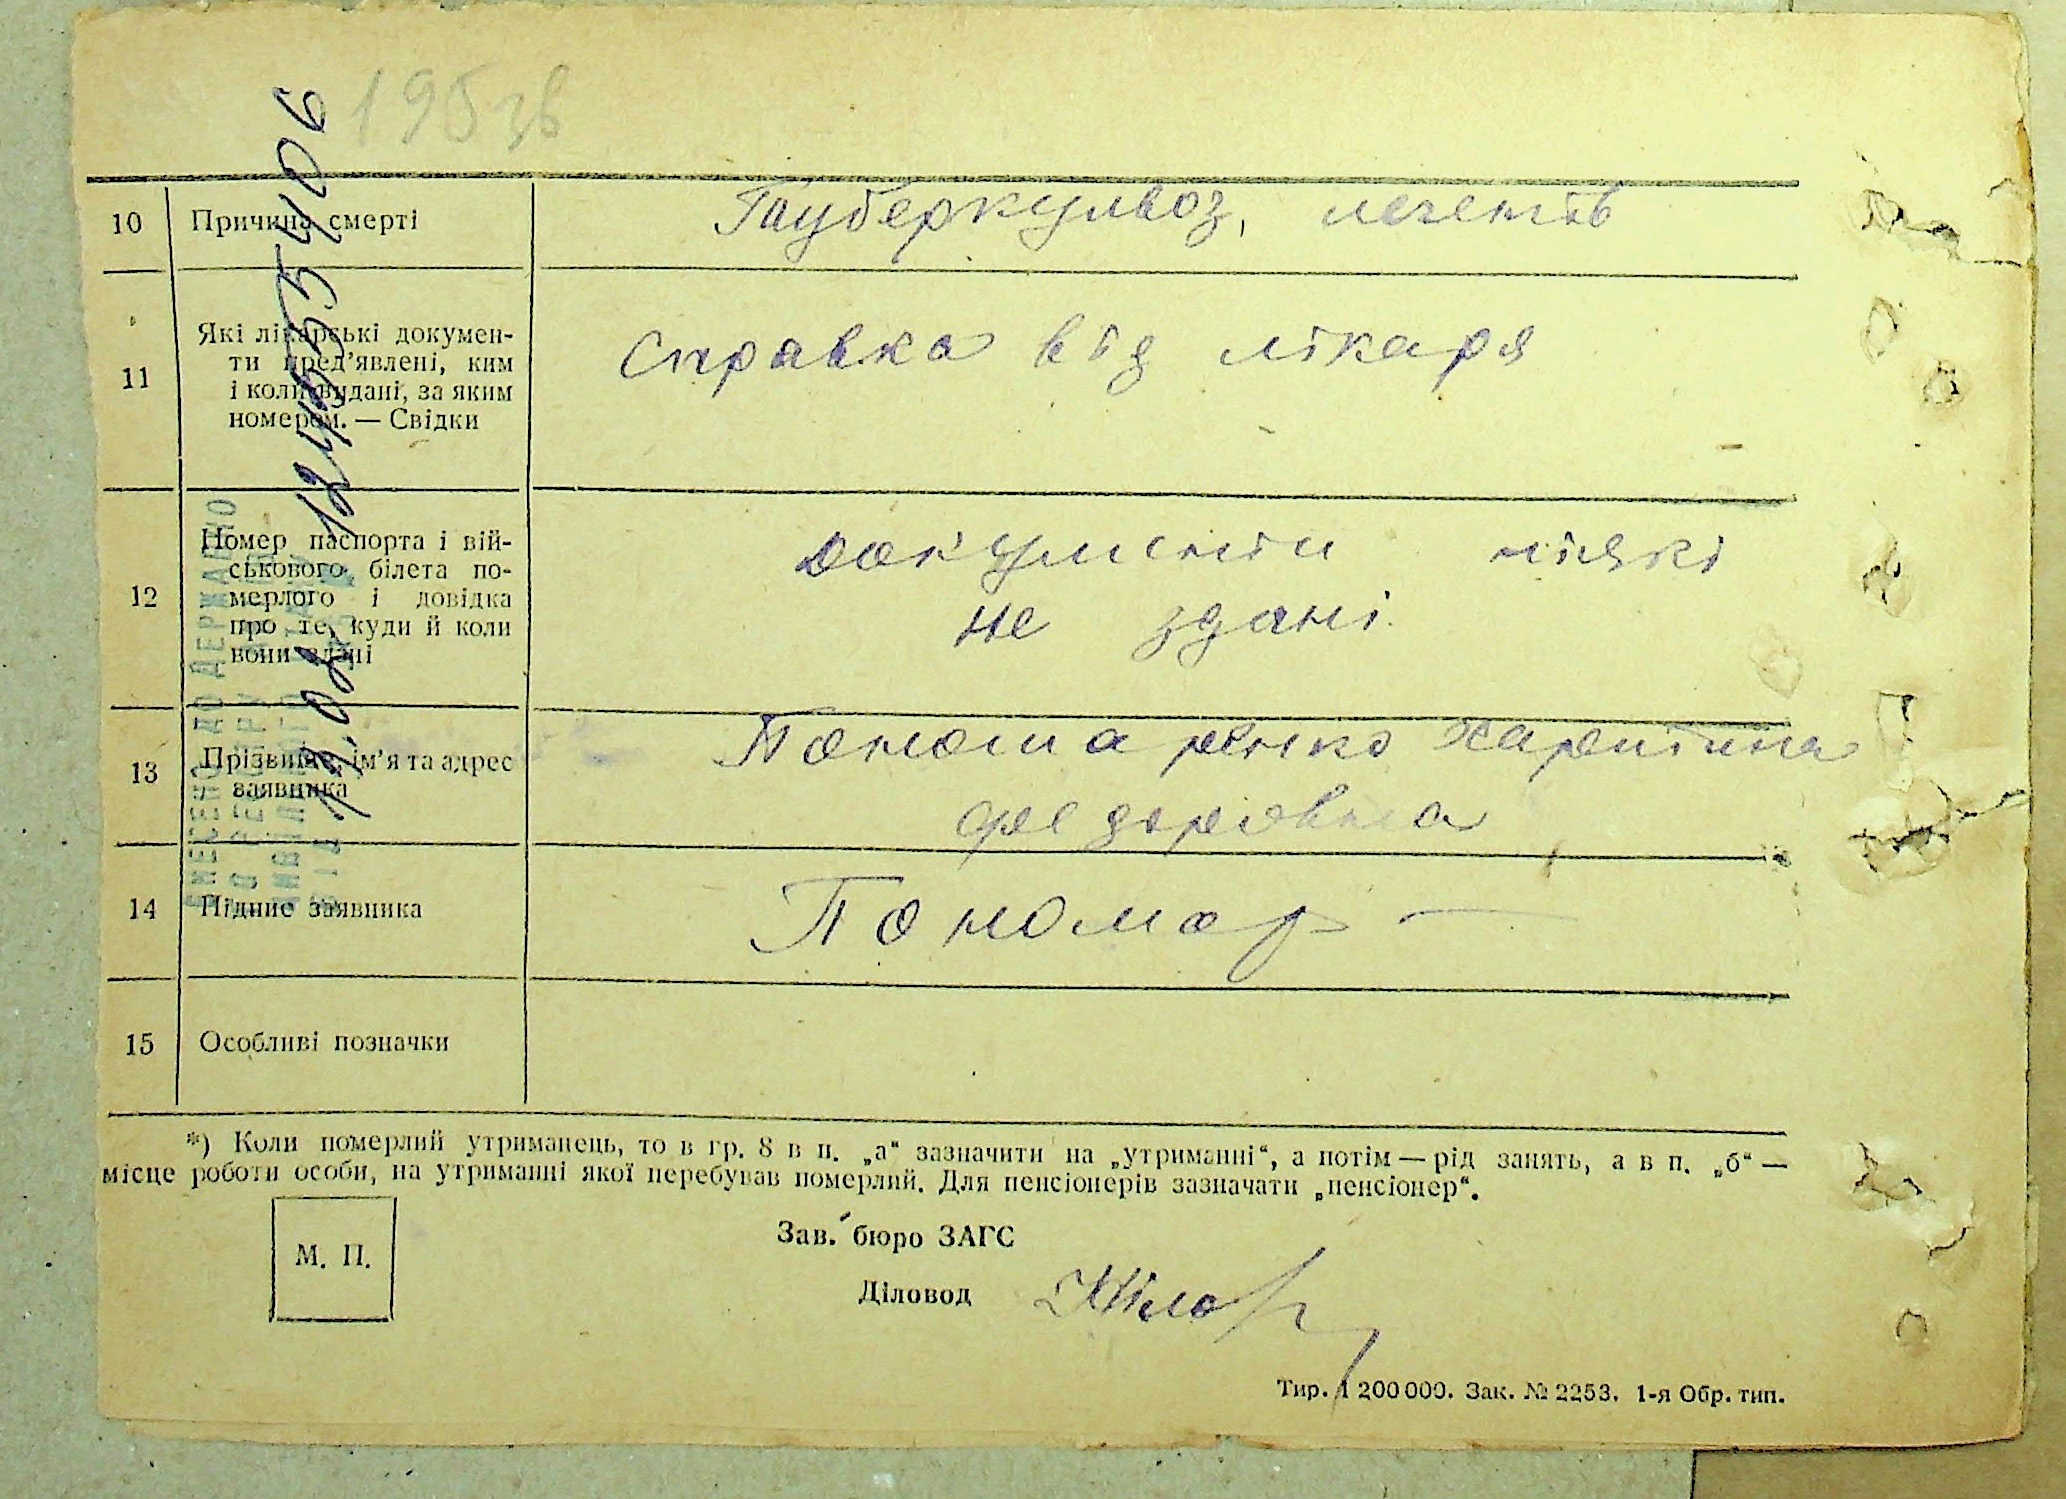 195 зв
10 Причина смерті
Тауберкульоз, легенів
11 Які лікарські докумен-
ти пред’явлені, ким
і коли видані, за яким
номером. — Свідки
справка від лікаря
12 Номер паспорта і вій-
ськового білета по-
мерлого і довідка
про те, куди й коли
вони здані
документи ніякі
не здані
13 Прізвище, ім’я та адрес
заявника
Пономаренко Харитина
федоровна
14 Підпис заявника
Пономар
15 Особливі позначки
*) Коли померлий утриманець, то в гр. 8 в п. „а“ зазначити на „утриманні“, а потім — рід занять, а в п. „б“ —
місце роботи особи, на утриманні якої перебував померлий. Для пенсіонерів зазначати „пенсіонер“.
М. П.
Зав. бюро ЗАГС
Діловод
Тир. 1 200 000. Зак. № 2253. 1-я Обр. тип.
ВНЕСЕНО ДО ДЕРЖАВНО